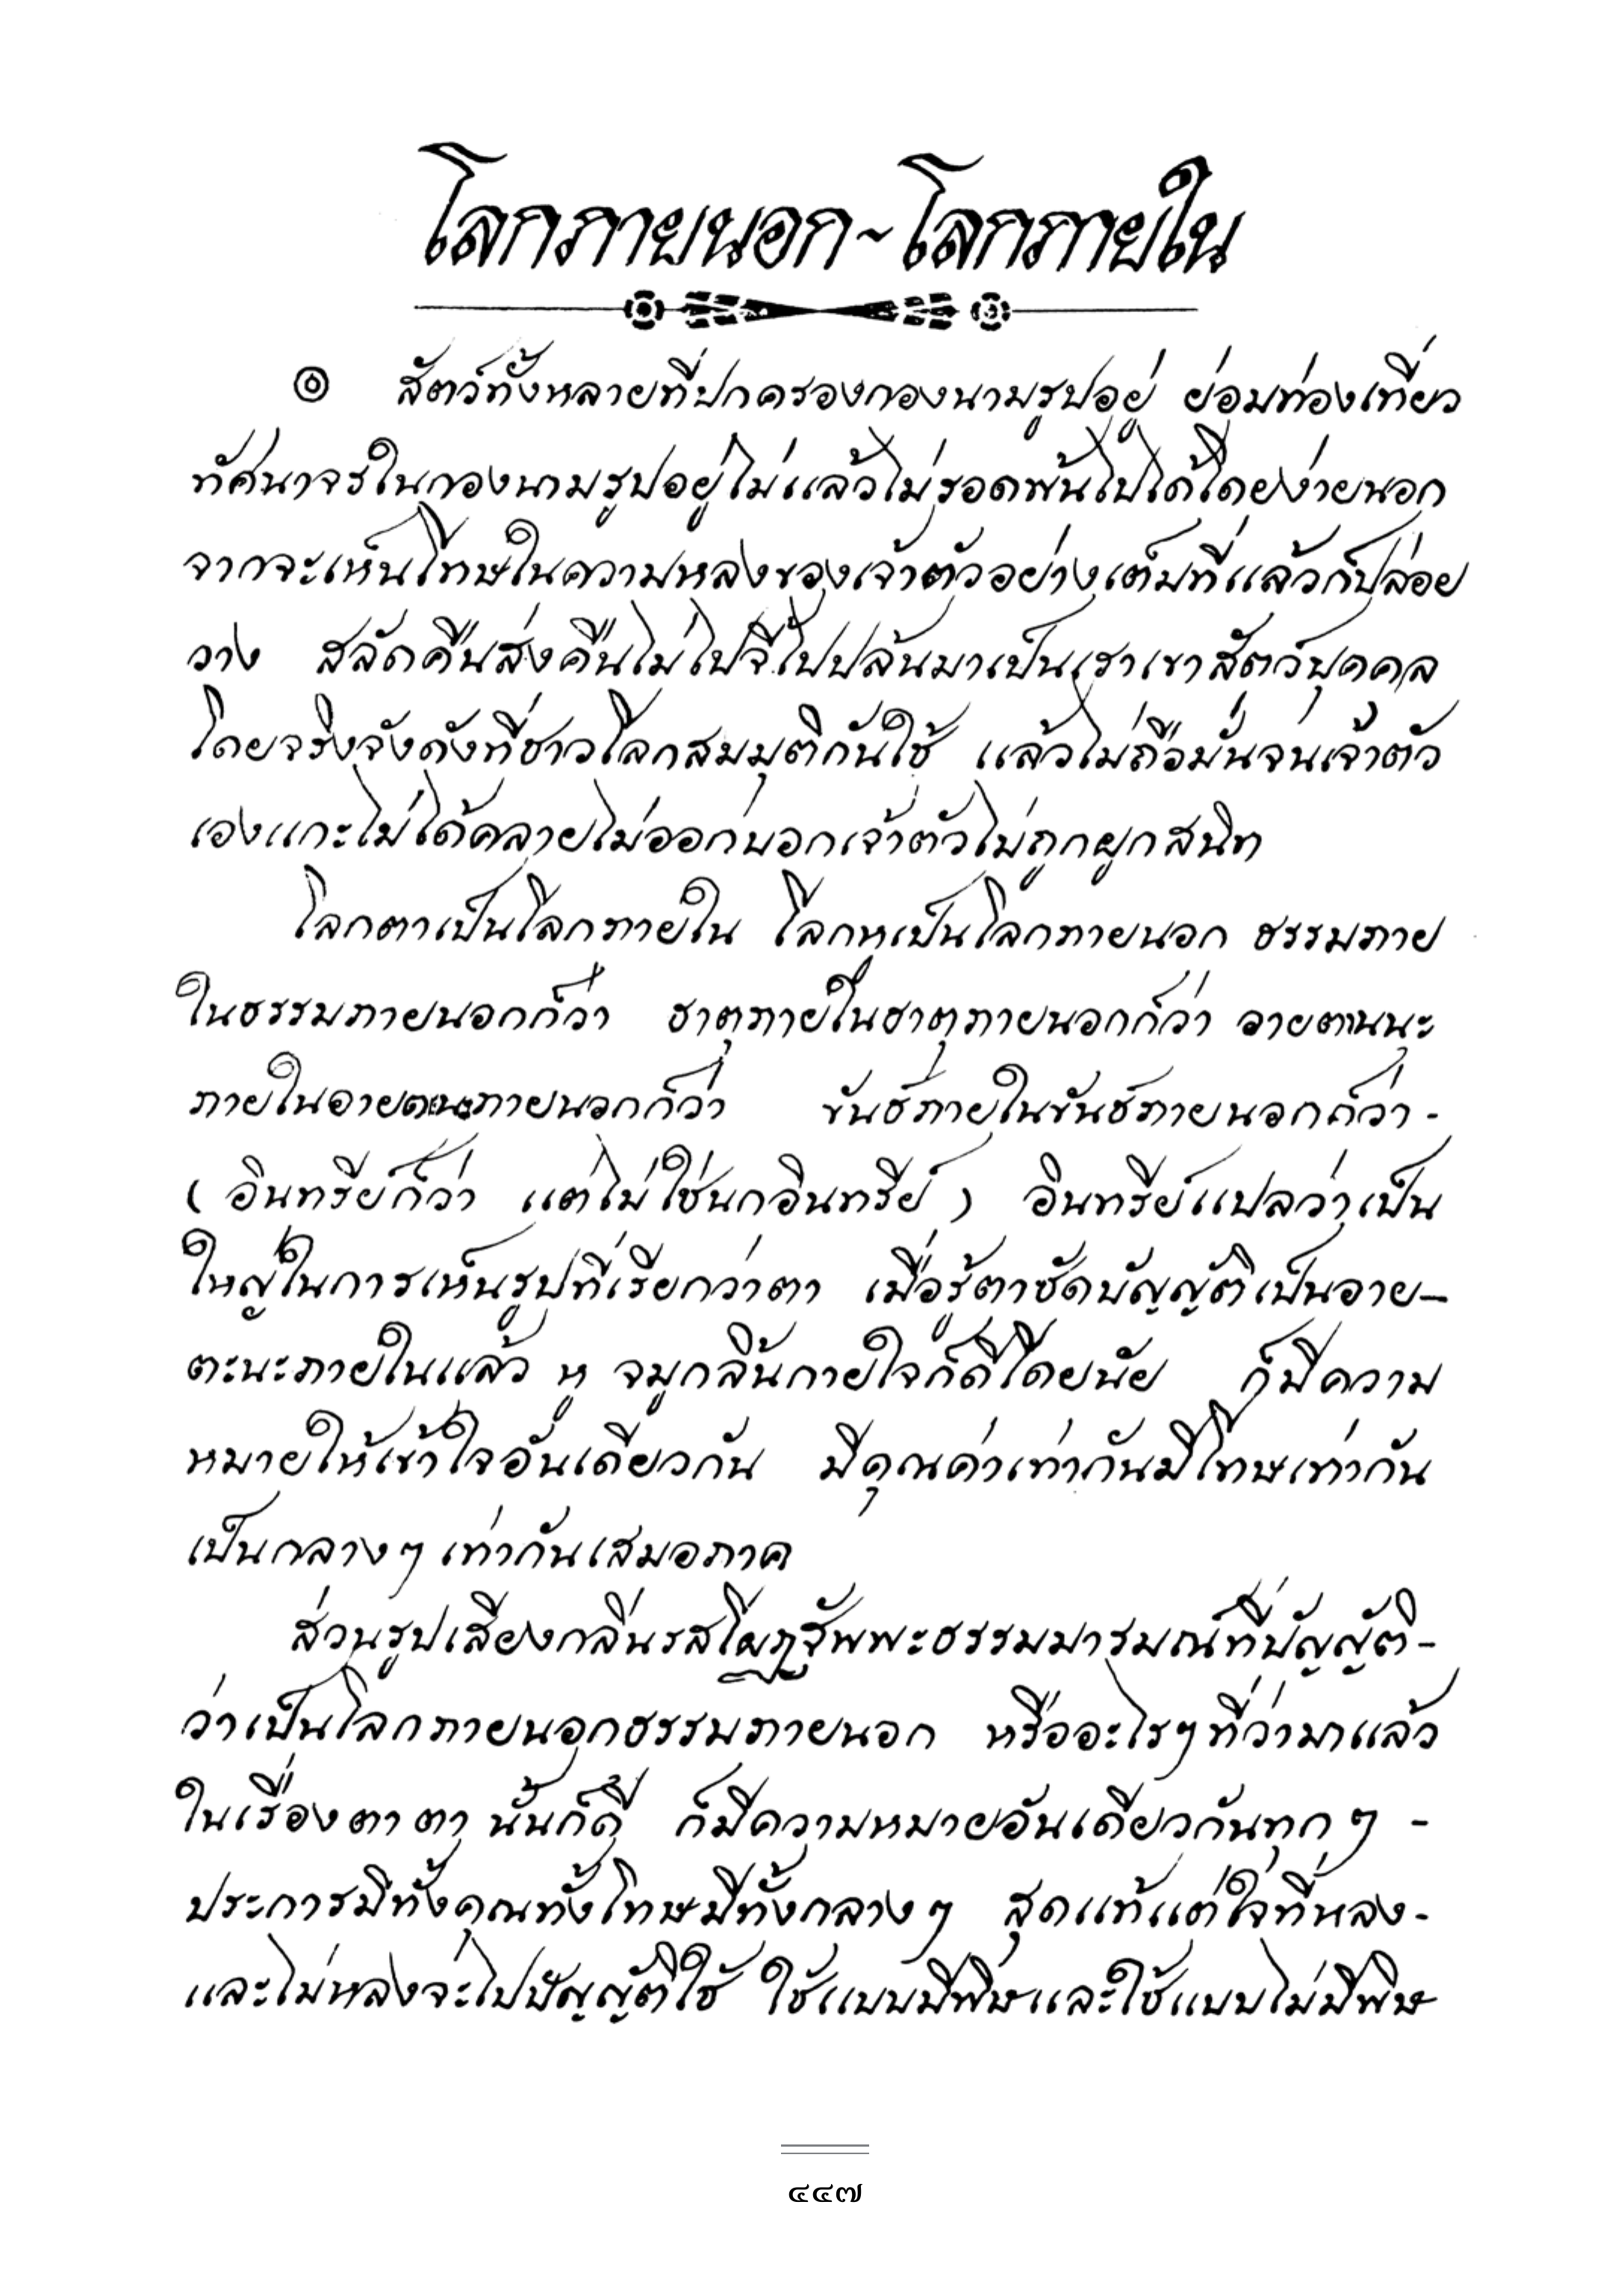 โลกภายนอก~โลกภายใน
๏ สัตว์ทั้งหลายที่ปกครองกองนามรูปอยู่ ย่อมท่องเที่ยว
ทัศนาจรในกองนามรูปอยู่ไม่แล้วไม่รอดพ้นไปได้โดยง่ายนอก
จากจะเห็นโทษในความหลงของเจ้าตัวอย่างเต็มที่แล้วก็ปล่อย
วาง สลัดคืนส่งคืนไม่ไปจี้ไปปล้นมาเป็นเราเขาสัตว์บุคคล
โดยจริงจังดังที่ชาวโลกสมมุติกันใช้ แล้วไม่ถือมั่นจนเจ้าตัว
เองแกะไม่ได้คลายไม่ออกบอกเจ้าตัวไม่ถูกผูกสนิท
โลกตาเป็นโลกภายใน โลกหูเป็นโลกภายนอก ธรรมภาย
ในธรรมภายนอกก็ว่า ธาตุภายในธาตุภายนอกก็ว่า อายตนะ
ภายในอายตนะภายนอกก็ว่า ขันธ์ภายในขันธ์ภายนอกก็ว่า -
( อินทรีย์ก็ว่า แต่ไม่ใช่นกอินทรีย์ ) อินทรีย์แปลว่าเป็น
ใหญ่ในการเห็นรูปที่เรียกว่าตา เมื่อรู้ตาชัดบัญญัติเป็นอาย-
ตะนะภายในแล้ว หู จมูกลิ้นกายใจก็ดีโดยนัย ก็มีความ
หมายให้เข้าใจอันเดียวกัน มีคุณค่าเท่ากันมีโทษเท่ากัน
เป็นกลางๆ เท่ากันเสมอภาค
ส่วนรูปเสียงกลิ่นรสโผฏฐัพพะธรรมมารมณ์ที่บัญญัติ-
ว่าเป็นโลกภายนอกธรรมภายนอก หรืออะไรๆที่ว่ามาแล้ว
ในเรื่องตา ตา นั้นก็ดี ก็มีความหมายอันเดียวกันทุกๆ -
ประการมีทั้งคุณทั้งโทษมีทั้งกลางๆ สุดแท้แต่ใจที่หลง-
และไม่หลงจะไปบัญญัติใช้ ใช้แบบมีพิษและใช้แบบไม่มีพิษ
๔๔๗